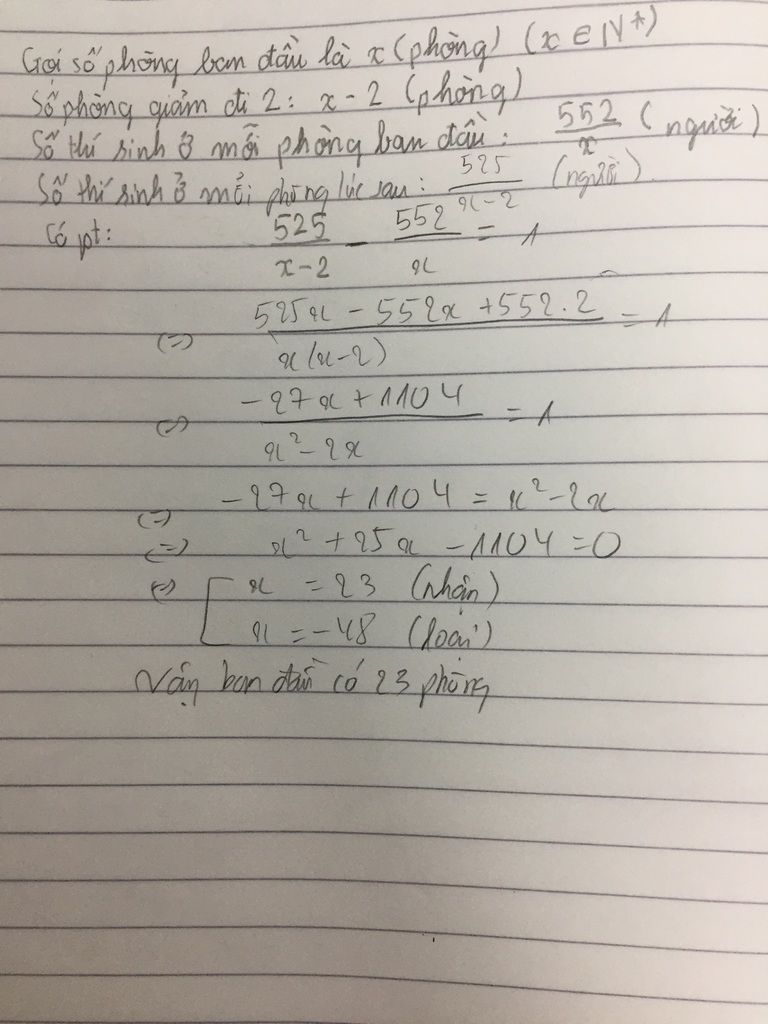 Gọi số phòng ban đầu là x (phòng) (x ∈ N*)
Số phòng giảm đi 2: x - 2 (phòng)
Số thí sinh ở mỗi phòng ban đầu: 552/x (người)
Số thí sinh ở mỗi phòng lúc sau: 525/x-2 (người).
Có pt: 525/x-2 - 552/x = 1
(=) 525x - 552x + 552.2/x(x-2) = 1
(=) -27x + 1104/x²-2x = 1
(=) -27x + 1104 = x² - 2x
(=) x² + 25x - 1104 = 0
(=) [ x = 23 (nhận)
x = -48 (loại)
Vậy ban đầu có 23 phòng